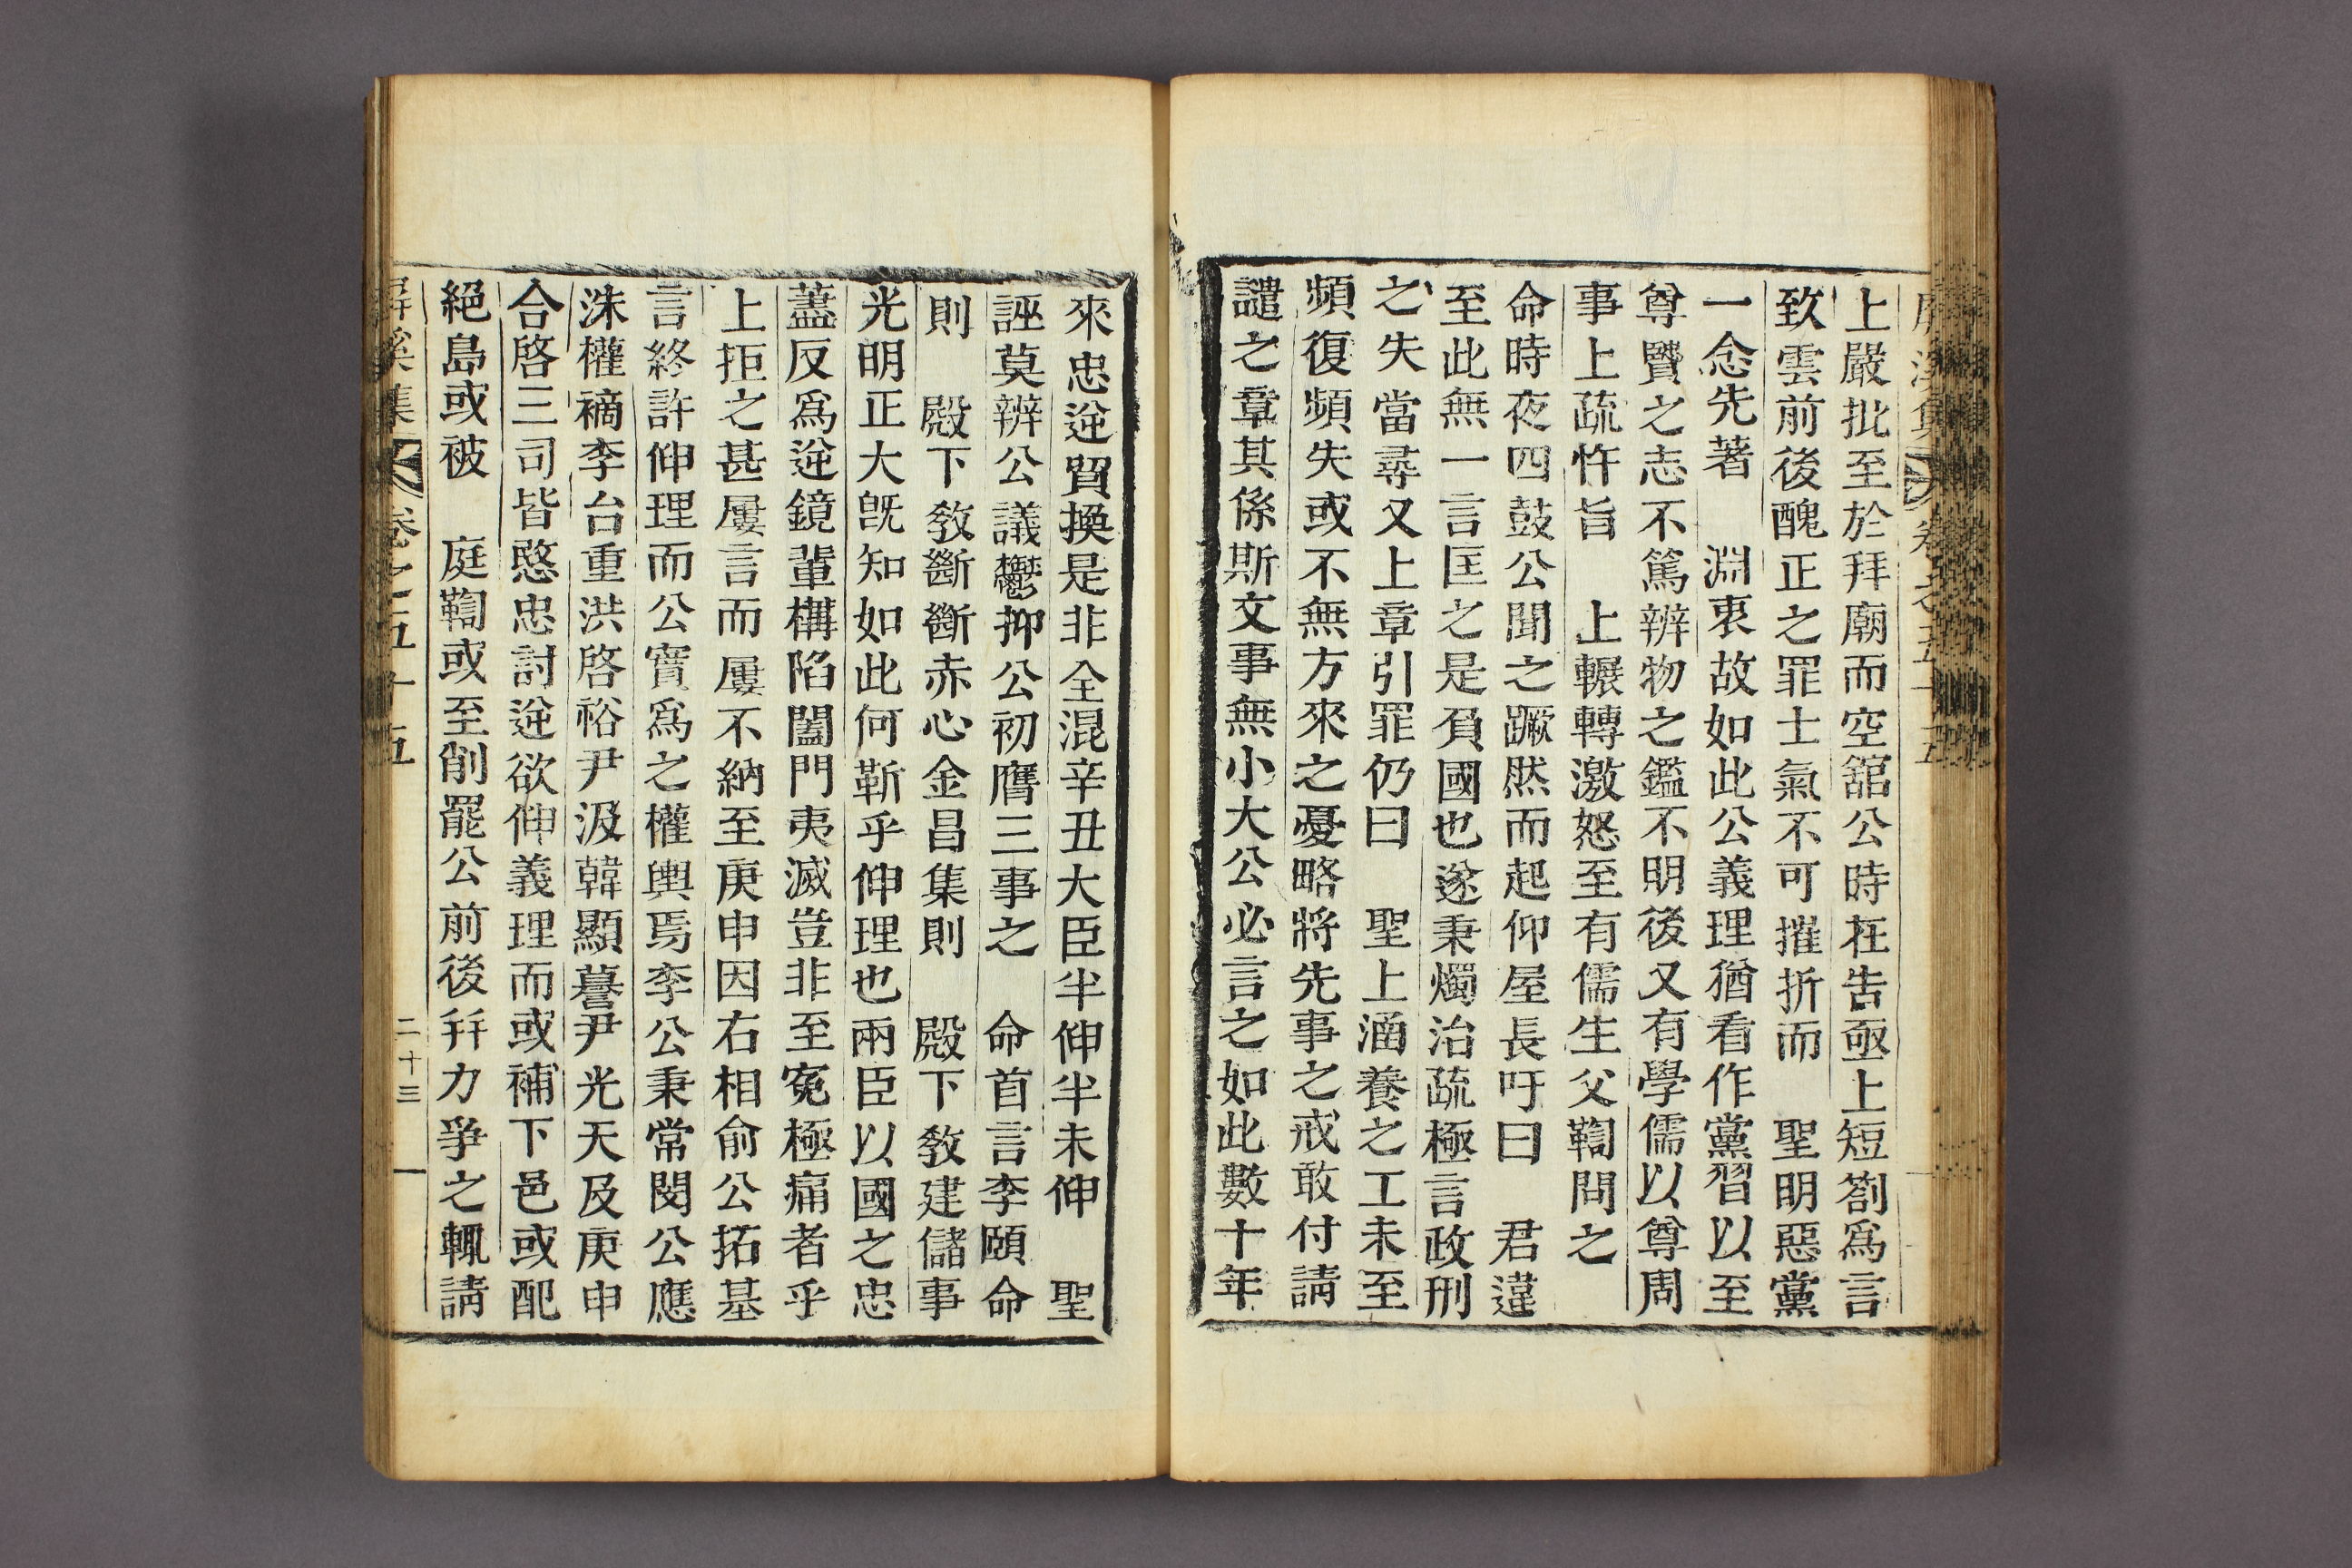 上嚴批至於拜廟而空舘公時在告亟上短劄爲言
致雲前後醜正之罪士氣不可摧折而　聖明惡黨
一念先著　淵衷故如此公義理猶看作黨習以至
尊賢之志不篤辨物之鑑不明後又有學儒以尊周
事上疏忤旨　上輾轉激怒至有儒生父鞫問之
命時夜四鼓公聞之蹶然而起仰屋長吁曰　君違
至此無一言匡之是負國也遂秉燭治疏極言政刑
之失當尋又上章引罪仍曰　聖上涵養之工未至
頻復頻失或不無方來之憂略將先事之戒敢付請
譴之章其係斯文事無小大公必言之如此數十年
來忠逆貿換是非全混辛丑大臣半伸半未伸　聖
誣莫辨公議鬱抑公初膺三事之　命首言李頤命
則　殿下敎斷斷赤心金昌集則　殿下敎建儲事
光明正大旣知如此何靳乎伸理也兩臣以國之忠
藎反爲逆鏡輩構陷闔門夷滅豈非至寃極痛者乎
上拒之甚屢言而屢不納至庚申因右相俞公拓基
言終許伸理而公實爲之權輿焉李公秉常閔公應
洙權樀李台重洪啓裕尹汲韓顯謩尹光天及庚申
合啓三司皆愍忠討逆欲伸義理而或補下邑或配
絕島或被　庭鞫或至削罷公前後幷力爭之輒請
屛溪集　卷之五十五　二十三